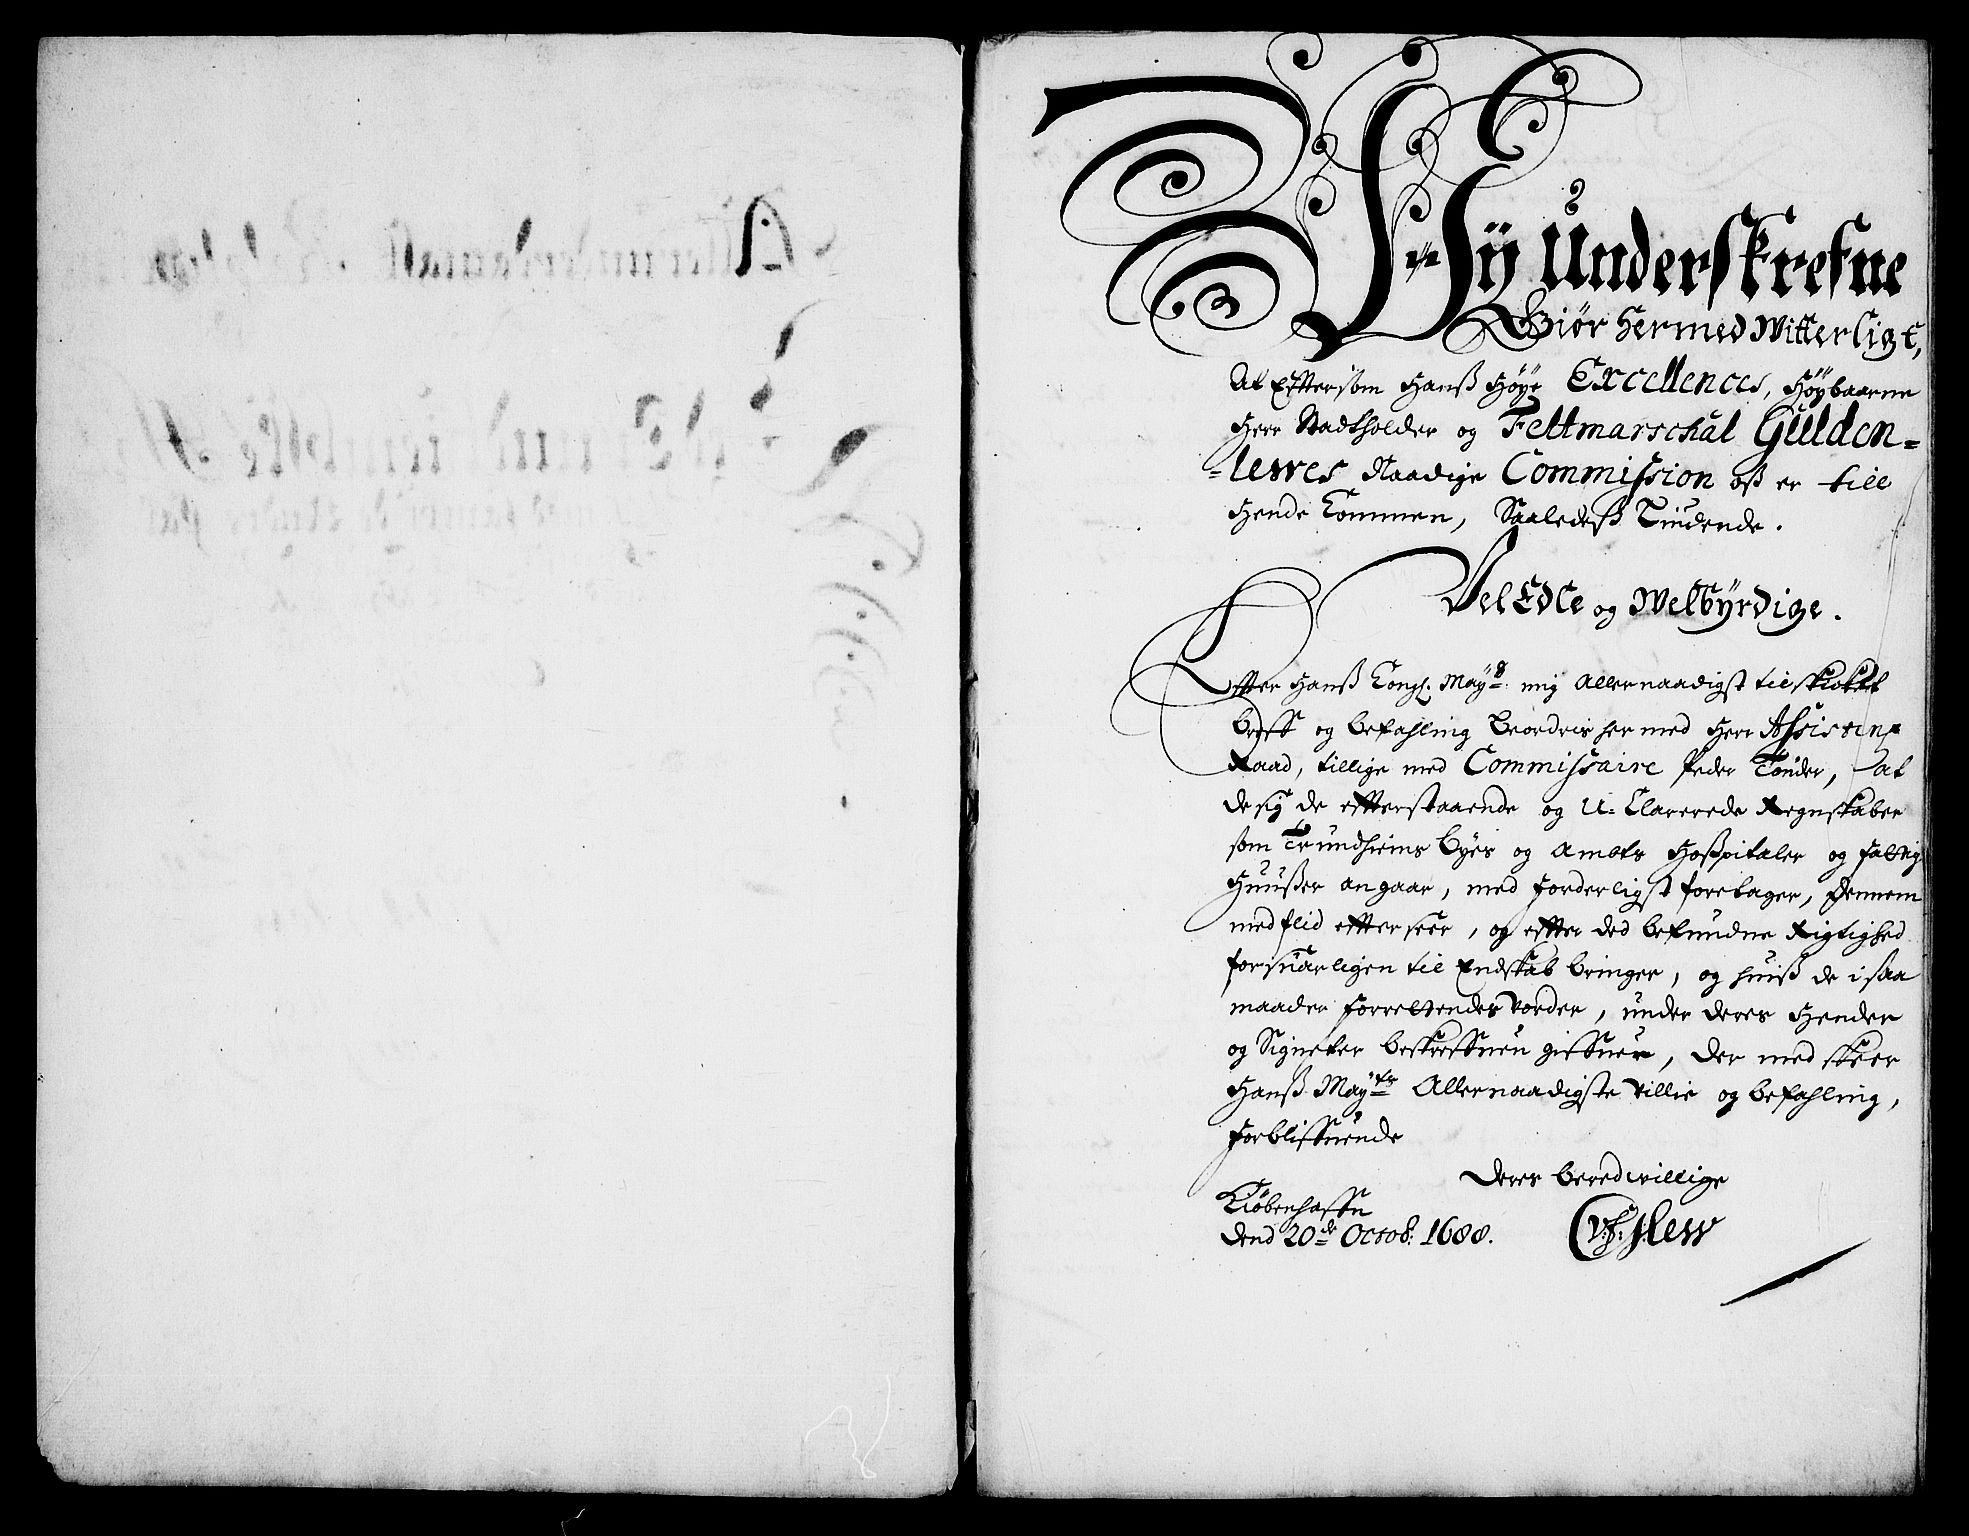 Wÿ Underskrefne
Giör hermed Witterligt,
At Effttersom Hanß Höye Excellences, Höÿbaarne
Herr Stadtholder og Feltmarschal Gulden-
-lewes Naadige Commission oß er till
Hende Kommen, Saaledeß Liudende.
Vel Edle og Welbÿrdige.
Effter Hanß Kongl. Maÿts mig Allernaadigst tilskicket
breff og befahling Beordris hermed Herr Assistenz
Raad, tillige med Commissaire Peder Tönder, at
de sig de effterstaaende og U-Clarerede Regnskaber
som Trundhiems Byes og Ambts Hoßpitaler og fattig
Huußer angaar, med forderligst foretager, dennem
med flid effterseer, og effter ded befundne Rigtighed
forsuarligen til Endskab bringer, og huiß de i saa
maader forrettendes vorder, under deres Hender
og Signeter beskreffuen giffuer, der med skeer
Hanß Maÿts Allernaadigste villie og befahling,
forbliffuende
Deres beredwillige
Kiöbenhaffn
dend 20de Octob: 1688.